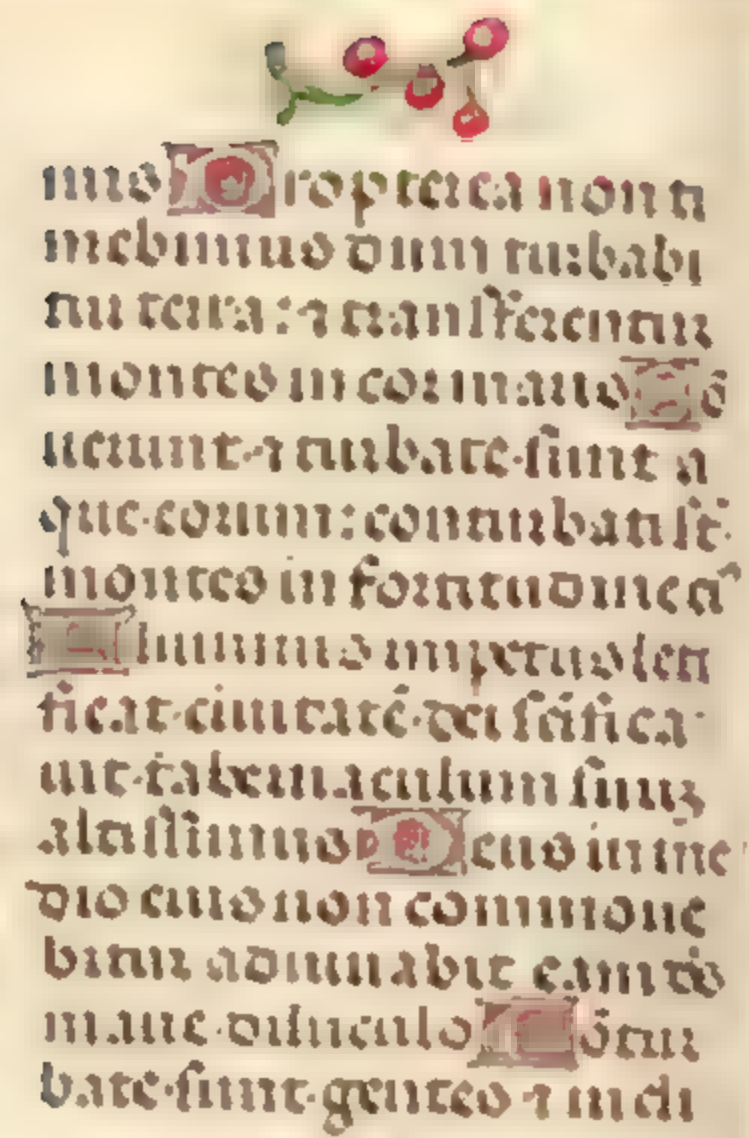 mis Propterea non ti
mebimus dum turbabi
tur terra: ⁊ transferentur
montes in cor maris So
nuerunt ⁊ turbate sunt a
que eorum: conturbati st̄
montes in fortitudine ei᾽
Fluminis impetus leti
ficat ciuitatē dei sc̄ifica
uit tabernaculum suuʒ
altissimus Deus in me
dio eius non commoue
bitur adiuuabit eam dc̄s
mane diluculo Cōtur
bate sunt gentes ⁊ incli